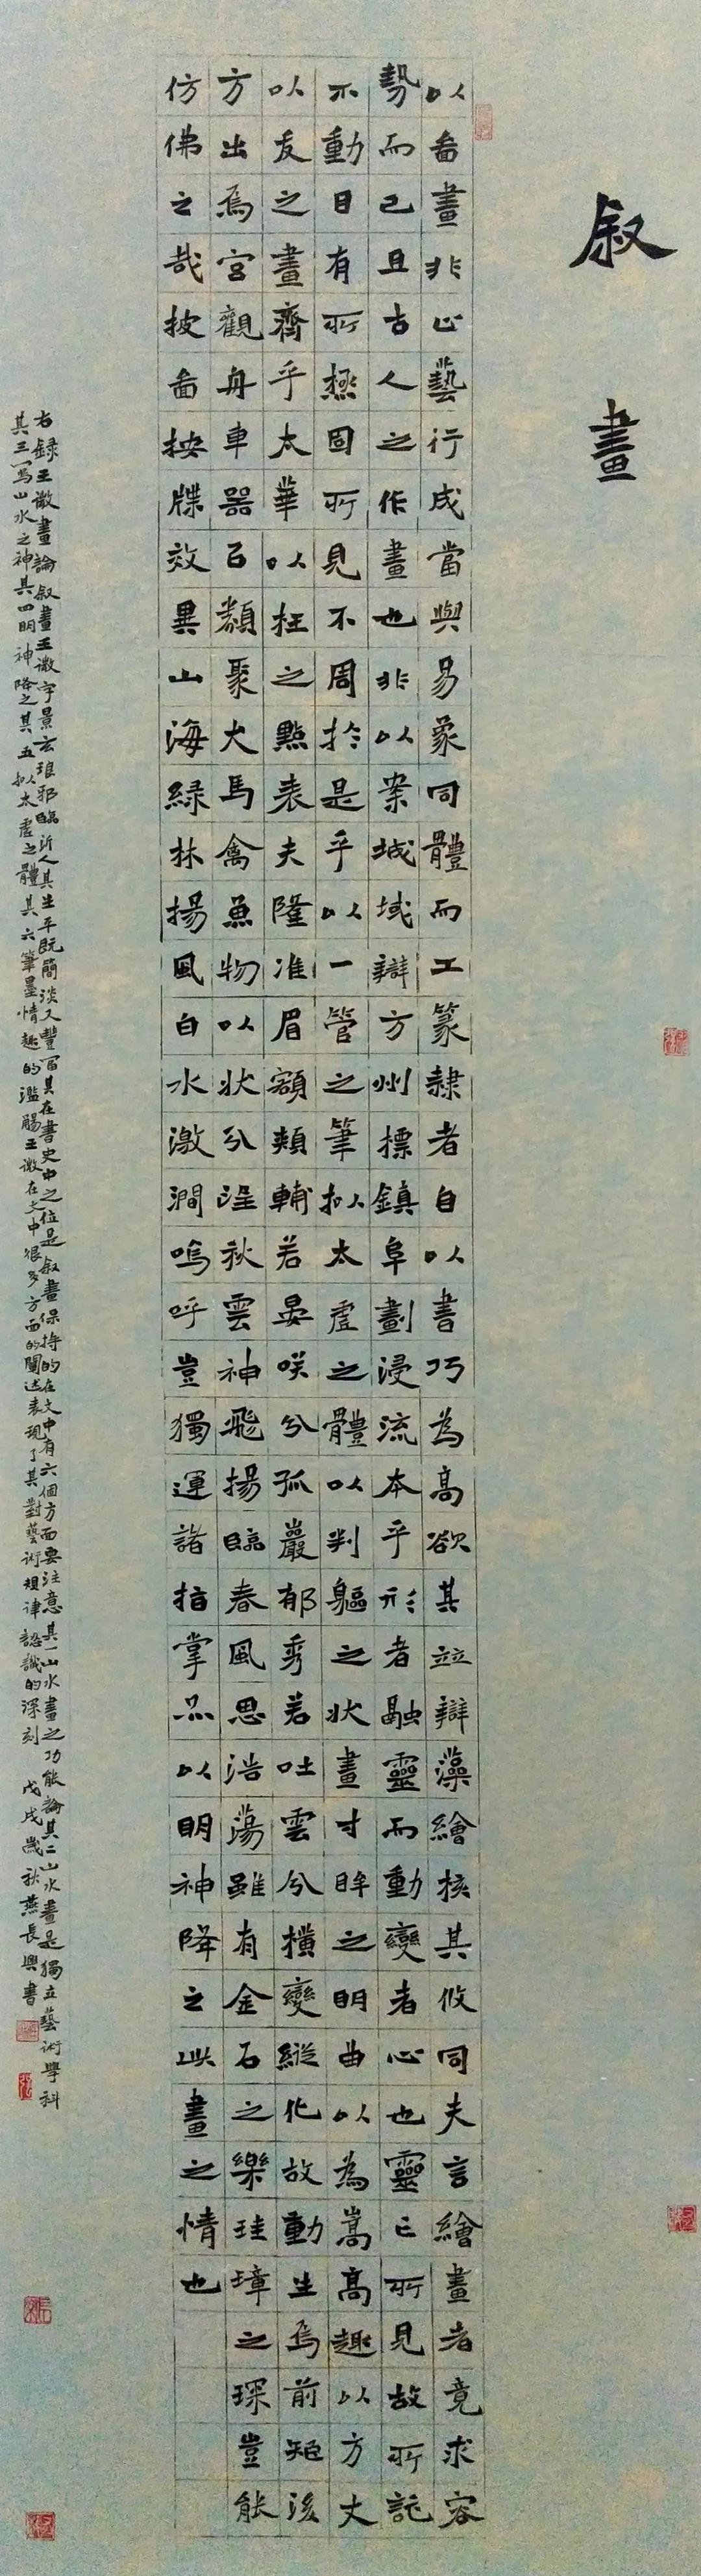 叙畫
以畵畫非止藝行成當與易象同體而工篆隷者自以書巧為高欲其竝辯藻繪核其攸同夫言繪畫者竟求容
勢而已且古人之作畫也非以案城域辯方州標鎮阜劃浸流本乎形者融靈而動變者心也靈亡所見故所託
不動目有所極固所見不周於是乎以一管之筆拟太虛之體以判軀之狀畫寸眸之明曲以為嵩高趣以方丈
以友之畫齊乎太華以枉之點表夫隆准眉額頰輔若晏咲兮孤巖郁秀若吐雲兮橫變縱化故動生焉前矩後
方出焉宮觀舟車器百類聚犬馬禽魚物以狀分淫秋雲神飛揚臨春風思浩蕩雖有金石之樂珪璋之琛豈能
仿佛之哉披畵按牒效異山海綠林揚風白水激澗嗚呼豈獨運諸指掌品以明神降之此畫之情也
右録王微畫論叙畫王微字景玄琅邪臨沂人其生平既簡淡又豐富其在書史中之位是叙畫保持的在文中有六個方面要注意其一山水畫之功能論其二山水畫是獨立藝術學科
其三寫山水之神其四明神降之其五拟太虛之體其六筆墨情趣的濫觴王微在文中很多方面的闡述表現了其對藝術規律認識的深刻 戊戌歲秋燕長興書